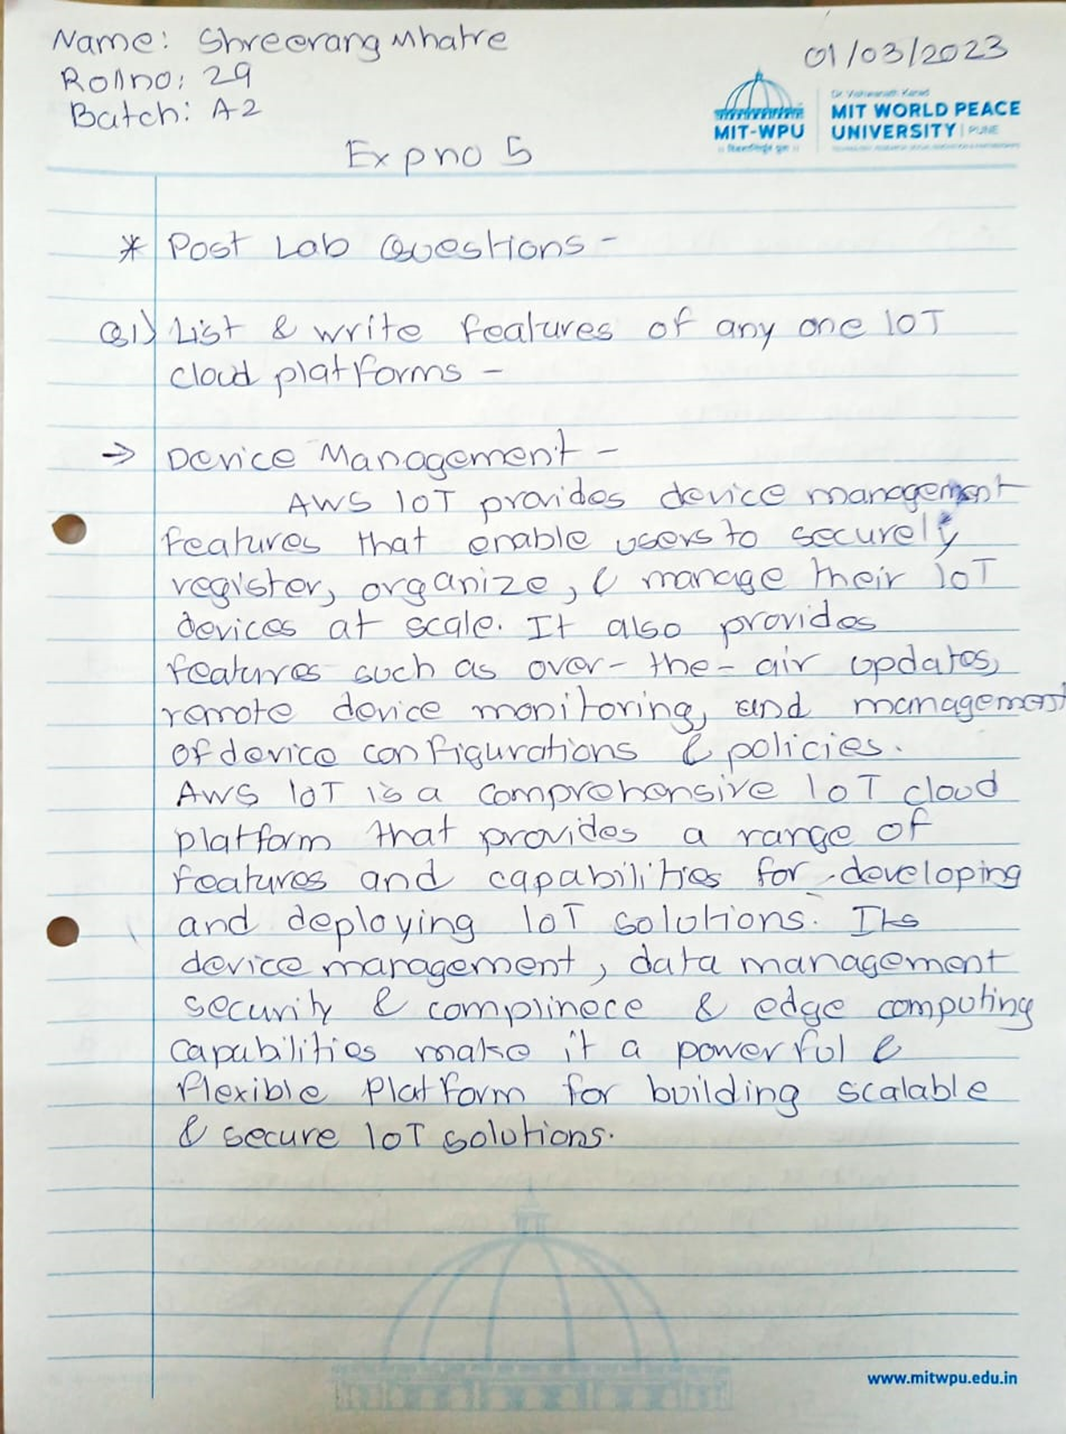 Name: Shreerang Mhatre
01/03/2023
Rollno: 29
Batch: A2
MIT-WPU
Dr. Vishwanath Karad
MIT WORLD PEACE
UNIVERSITY | PUNE
Exp no 5
* Post Lab Questions -
Q1) List & write features of any one IOT
cloud platforms -
→ Device Management -
AWS IOT provides device management
features that enable users to securely
register, organize, & manage their IoT
devices at scale. It also provides
features such as over-the-air updates,
remote device monitoring, and management
of device configurations & policies.
AWS IoT is a comprehensive IoT cloud
platform that provides a range of
features and capabilities for developing
and deploying IoT solutions. Its
device management, data management
security & complinece & edge computing
capabilities make it a powerful &
flexible Platform for building scalable
& secure IoT solutions.
www.mitwpu.edu.in